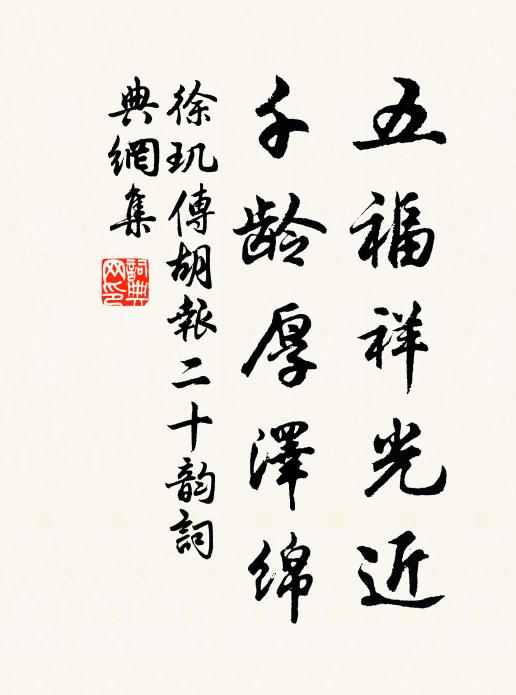 五福祥光近
千龄厚澤绵
徐玑傳胡報二十韵詞
典網集
詞典
网印